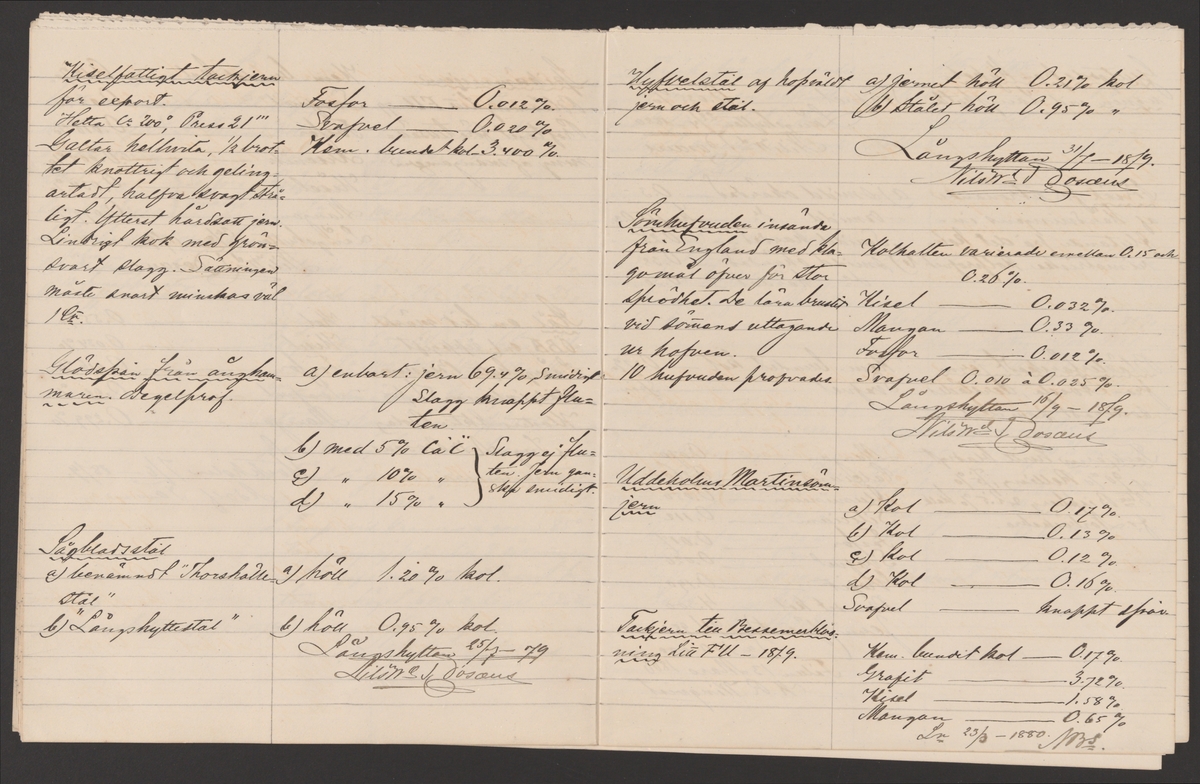 Kiselfattigt tackjern
för export.
Hetta Ca 200°, Press 21'''
Galtar helhvita, 1/2 brot-
tet knottrigt och geling-
artadt, halfva svagt strå-
ligt. Ytterst hårdsatt jern.
Lindrigt kok med grön-
svart slagg. Sättningen
måste snart minskas väl
1 Ctr.
Fosfor — 0.012 %.
Svafvel — 0.020 %
Kem. bundet kol — 3.400 %.
Glödspån från ångham-
maren. Degelprof.
a) enbart: jern 69.4 %, smidigt
Slagg knappt flu-
ten
b) med 5 % Ca C
c) „ 10 % „
d) „ 15 % „
Slagg ej flu-
ten. Jern gan-
ska smidigt.
Sågbladsstål
a) benämndt "Thorshälla-
stål"
a) höll 1.20 % kol.
b) "Långshyttestål"
b) höll 0.95 % kol.
Långshyttan 25/7 – 79
Nils Wm J Rosæus
Hyfvelstål af hopvälldt
jern och stål.
a) jernet höll 0.21 % kol
b) stålet höll 0.95 % „
Långshyttan 31/7 – 1879.
Nils Wm J Rosæus
Sömhufvuden insända
från England med kla-
gomål öfver för stor
sprödhet. De lära brustit
vid sömmens uttagande
ur hofven.
10 hufvuden profvades
Kolhalten varierade emellan 0.15 och
0.26 %.
Kisel — 0.032 %.
Mangan — 0.33 %.
Fosfor — 0.012 %.
Svafvel 0.010 à 0.025 %.
Långshyttan 16/9 – 1879.
Nils Wm J Rosæus
Uddeholms Martinsöm-
jern
a) Kol — 0.17 %.
b) Kol — 0.13 %.
c) Kol — 0.12 %.
d) Kol — 0.16 %.
Svafvel — knappt spår.
Tackjern till Bessemerblås-
ning Litt FU – 1879.
Kem. bundit kol — 0.17 %.
Grafit — 3.72 %.
Kisel — 1.58 %.
Mangan — 0.65 %
Ln 23/3 – 1880.